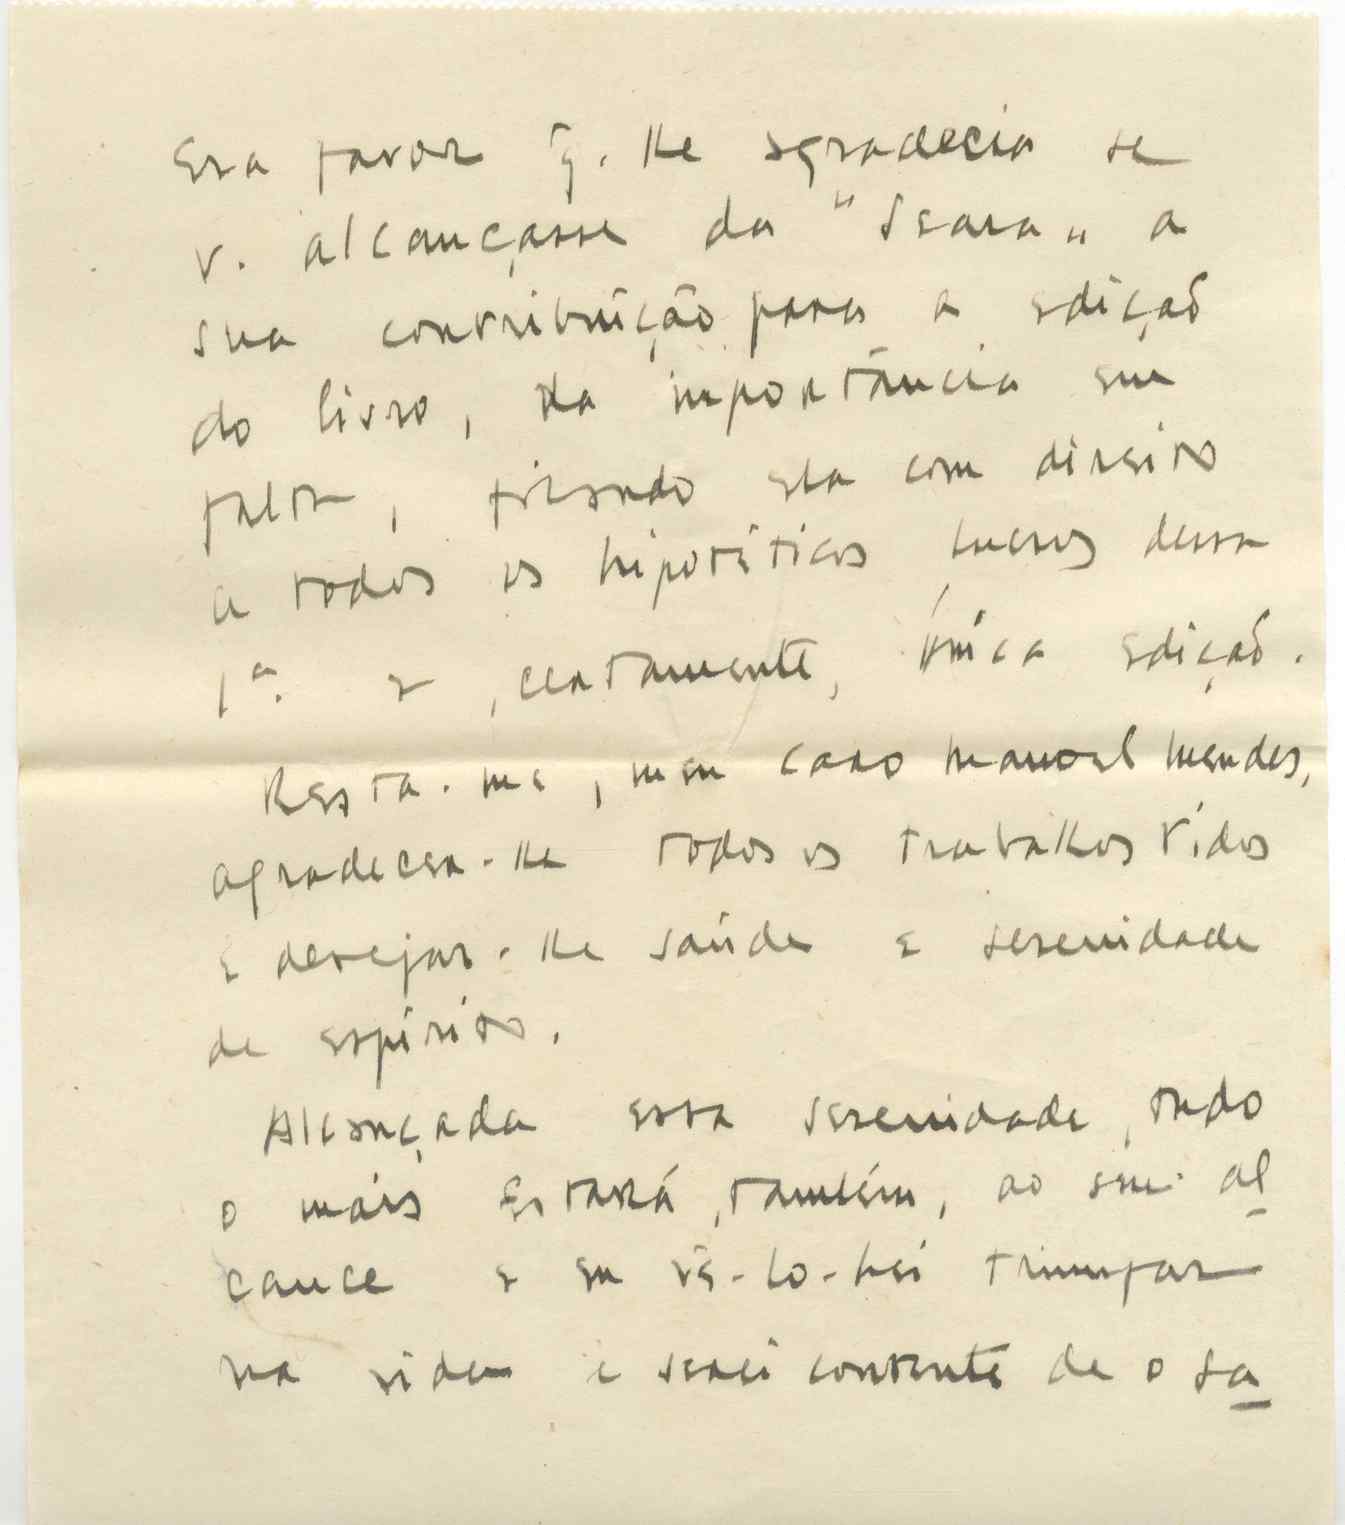 Era favor q̃. lhe agradecia se
v. alcançasse da "Seara„ a
sua contribuição para a edição
do livro, na importância em
falta, ficando ela com direito
a todos os hipotéticos lucros dessa
1ª. e, certamente, única edição.
Resta-me, meu caro Manoel Mendes,
agradecer-lhe todos os trabalhos tidos
e desejar-lhe saúde e serenidade
de espírito.
Alcançada essa serenidade, tudo
o mais estará, também, ao seu al
cance e eu vê-lo-hei triunfar
na vida e serei contente de o sa